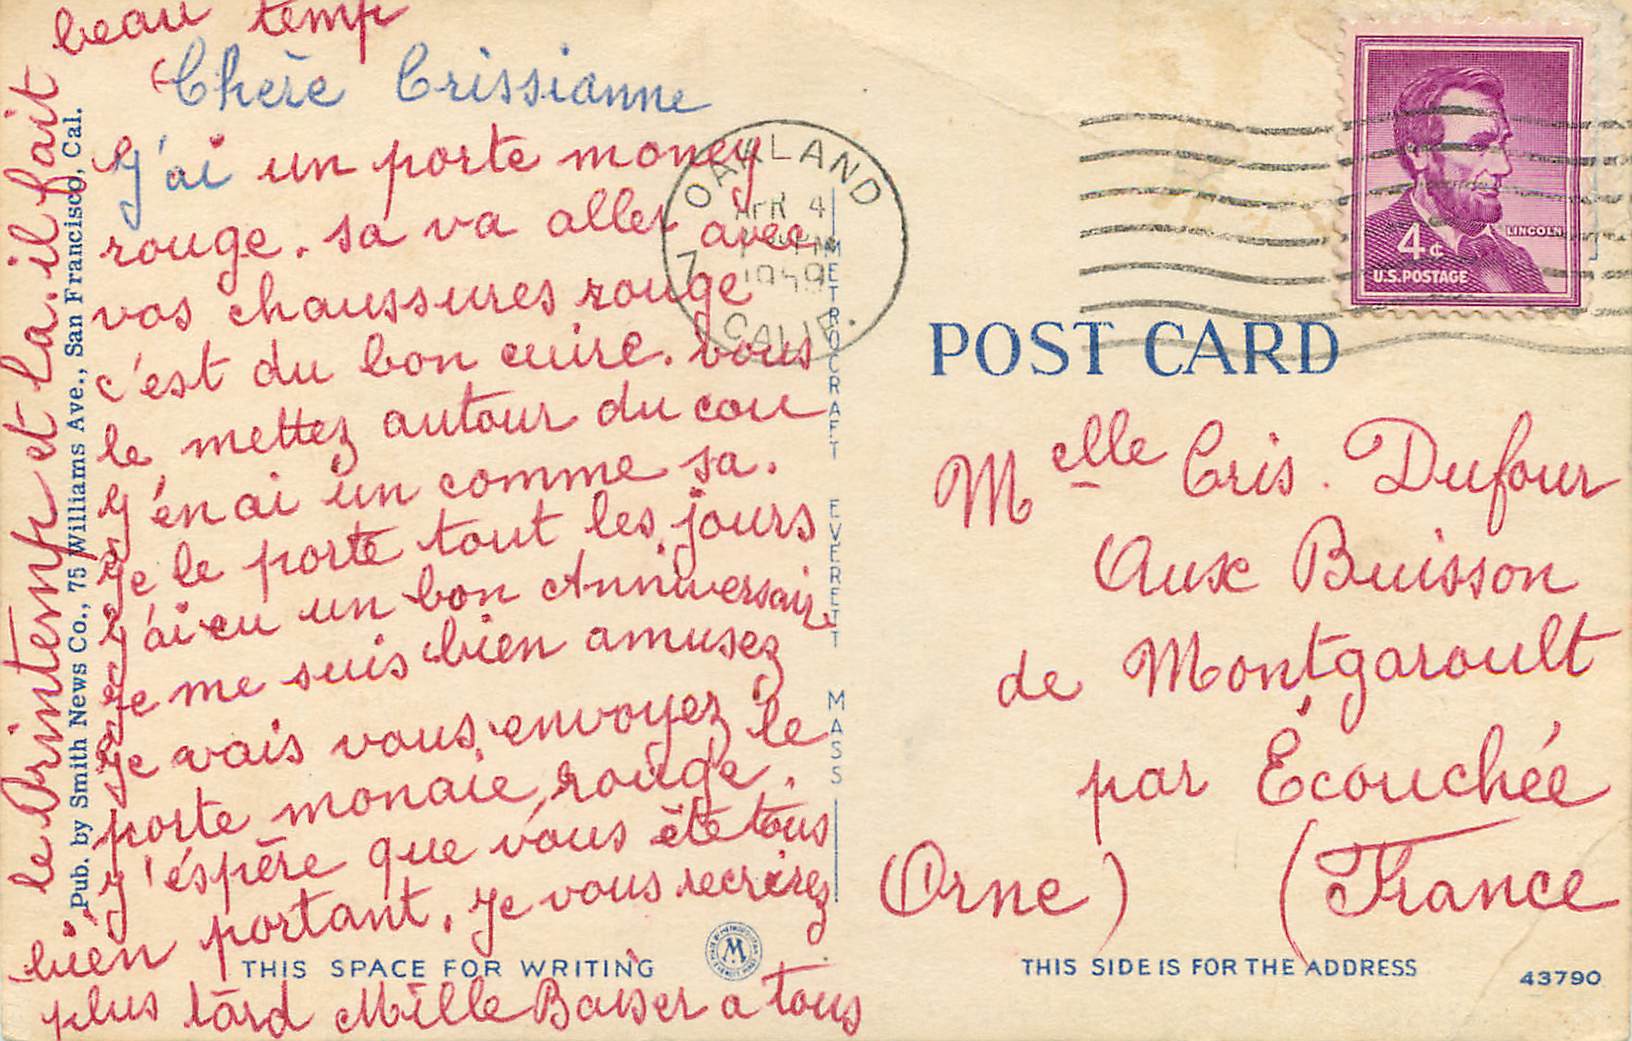 Chère Crissianne
j'ai un porte money
rouge. sa va aller avec
vos chaussures rouge
c'est du bon cuire. vous
le mettez autour du cou
j'en ai un comme sa.
je le porte tout les jours
j'ai eu un bon Anniversaire
je me suis bien amusez
je vais vous envoyez le
porte monaie rouge.
j'éspère que vous ète tous
bien portant. je vous recrirez
plus tard Mille Baiser a tous
le Printemps et la. il fait
beau temp
Pub. by Smith News Co., 75 Williams Ave., San Francisco, Cal.
METROCRAFT EVERETT MASS
THIS SPACE FOR WRITING
M
OAKLAND
APR 4
1959
CALIF.
LINCOLN
4¢
U.S. POSTAGE
POST CARD
Melle Cris. Dufour
Aux Buisson
de Montgaroult
par Écouchée
(Orne) (France
THIS SIDE IS FOR THE ADDRESS
43790